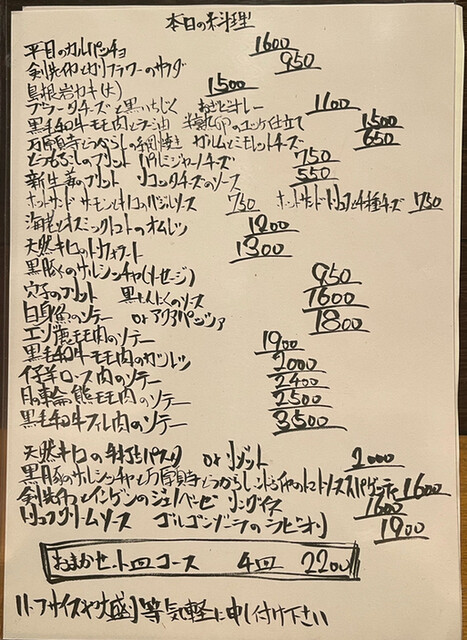 本日の料理
平目のカルパッチョ 1600
剣先イカとカリフラワーのサラダ 950
島根岩カキ(大) 1500
ブラータチーズと黒いちじく 1100
黒毛和牛モモ肉とラー油 半熟卵のユッケ仕立て 1500
万願寺とうがらしの網焼き ガルムとミモレットチーズ 650
とうもろこしのフリット パルミジャーノチーズ 750
新生姜のフリット リコッタチーズのソース 550
ホットサンド サーモンとバジルソース 750 ホットサンド トリュフと4種チーズ 750
海老とセミドライトマトのオムレツ 1200
天然キノコのトリフォラート 1300
黒豚のサルシッチャ(ソーセージ) 950
穴子のフリット 黒にんにくのソース 1600
白身魚のソテー or アクアパッツァ 1800
エゾ鹿モモ肉のソテー 1900
黒毛和牛モモ肉のカツレツ 2000
仔羊ロース肉のソテー 2400
月の輪熊モモ肉のソテー 2500
黒毛和牛フィレ肉のソテー 3500
天然キノコの手打ちパスタ or リゾット 2000
黒豚のサルシッチャと万願寺とうがらしのトマトソーススパゲティ 1600
剣先イカとインゲンのジェノベーゼ リングイネ 1600
トリュフクリームソース ゴルゴンゾーラのラビオリ 1900
おまかせ一皿コース 4皿 2200
ハーフサイズや大盛り等気軽に申し付け下さい